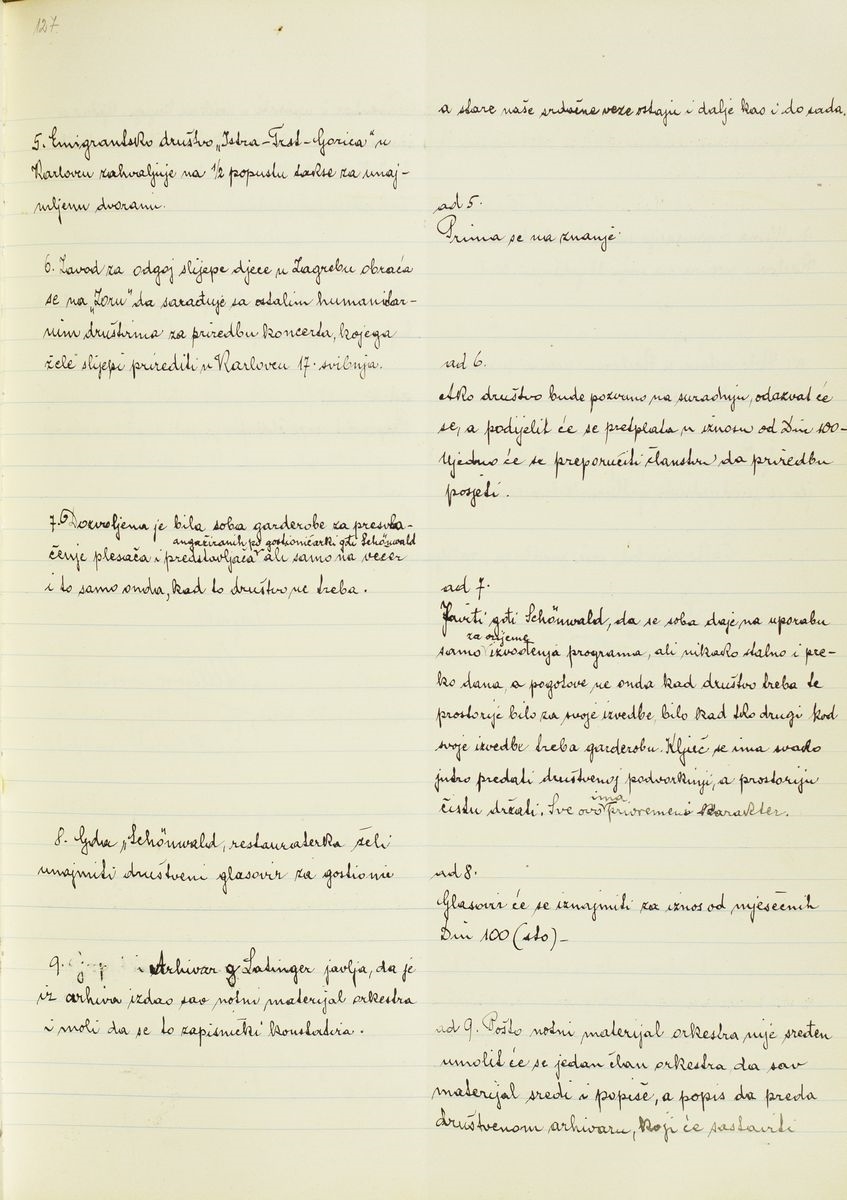 127.
5. Emigrantsko društvo „Istra-Trst-Gorica" u
Karlovcu zahvaljuje na 1/2 popustu takse za unaj-
mljenu dvoranu.
6. Zavod za odgoj slijepe djece u Zagrebu obraća
se na „Zoru" da sarađuje sa ostalim humanitar-
nim društvima za priredbu koncerta, kojega
žele slijepi prirediti u Karlovcu 17. svibnja.
7. Dozvoljena je bila soba garderobe za presvla-
angažiranih po gostioničarki gđi Schönwald
čenje plesača i predstavljača ali samo na večer
i to samo onda, kad to društvo ne treba.
8. Gđa „Schönwald, restauraterka želi
unajmiti društveni glasovir za gostione
9. i Arhivar g Latinger javlja, da je
iz arhiva izdao sav notni materijal orkestra
i moli da se to zapisnički konstatira.
a stare naše srdačne veze ostaju i dalje kao i do sada.
ad 5.
Prima se na znanje.
ad 6.
Ako društvo bude pozvano na suradnju, odazvat će
se, a podijelit će se pretplata u iznosu od Din 100-
Ujedno će se preporučiti članstvu da priredbu
posjeti.
ad 7.
Javiti gđi Schönwald, da se soba daje na uporabu
za vrijeme
samo izvođenja programa, ali nikako stalno i pre-
ko dana, a pogotovo ne onda kad društvo treba te
prostorije bilo za svoje izvedbe, bilo kad tko drugi kod
svoje izvedbe treba garderobu. Ključ se ima svako
jutro predati društvenoj podvorkinji, a prostoriju
ima
čistu držati. Sve ovo privremeni karakter.
ad 8.
Glasovir će se iznajmiti za iznos od mjesečnih
Din 100 (sto)-
ad 9. Pošto notni materijal orkestra nije sređen
umolit će se jedan član orkestra da sav
materijal sredi i popiše, a popis da preda
društvenom arhivaru, koji će sastaviti